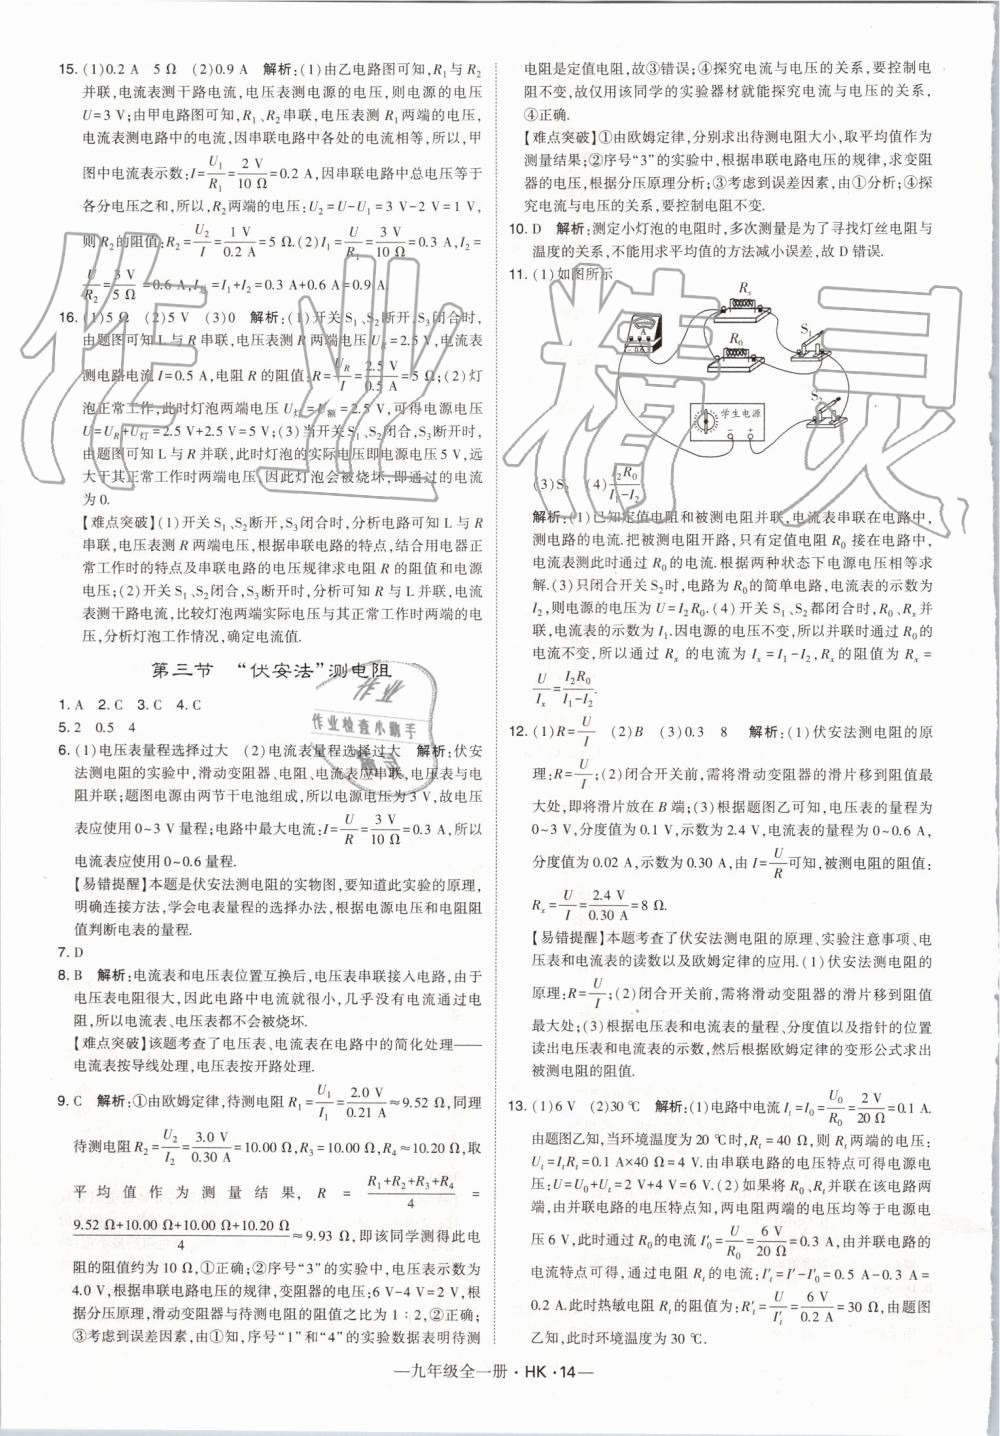 15. (1)0.2 A 5 Ω (2)0.9 A 解析:(1)由乙电路图可知,R₁与R₂
并联,电流表测干路电流,电压表测电源的电压,则电源的电压
U=3 V;由甲电路图可知,R₁、R₂串联,电压表测R₁两端的电压,
电流表测电路中的电流,因串联电路中各处的电流相等,所以,甲
图中电流表示数:I=U₁/R₁=2 V/10 Ω=0.2 A,因串联电路中总电压等于
各分电压之和,所以,R₂两端的电压:U₂=U-U₁=3 V-2 V=1 V,
则R₂的阻值:R₂=U₂/I=1 V/0.2 A=5 Ω.(2)I₁=U/R₁=3 V/10 Ω=0.3 A,I₂=
U/R₂=3 V/5 Ω=0.6 A,I=I₁+I₂=0.3 A+0.6 A=0.9 A.
16. (1)5 Ω (2)5 V (3)0 解析:(1)开关S₁、S₂断开,S₃闭合时,
由题图可知L与R串联,电压表测R两端电压U_R=2.5 V,电流表
测电路电流I=0.5 A,电阻R的阻值:R=U_R/I=2.5 V/0.5 A=5 Ω;(2)灯
泡正常工作,此时灯泡两端电压U灯=U额=2.5 V,可得电源电压
U=U_R+U灯=2.5 V+2.5 V=5 V;(3)当开关S₁、S₂闭合,S₃断开时,
由题图可知L与R并联,此时灯泡的实际电压即电源电压5 V,远
大于其正常工作时两端电压,因此灯泡会被烧坏,即通过的电流
为0.
【难点突破】(1)开关S₁、S₂断开,S₃闭合时,分析电路可知L与R
串联,电压表测R两端电压,根据串联电路的特点,结合用电器正
常工作时的特点及串联电路的电压规律求电阻R的阻值和电源
电压;(2)开关S₁、S₂闭合,S₃断开时,分析可知L与R并联,电流
表测干路电流,比较灯泡两端实际电压与其正常工作时两端的电
压,分析灯泡工作情况,确定电流值.
第三节 “伏安法”测电阻
1. A 2. C 3. C 4. C
5. 2 0.5 4
6. (1)电压表量程选择过大 (2)电流表量程选择过大 解析:伏安
法测电阻的实验中,滑动变阻器、电阻、电流表应串联,电压表与电
阻并联;题图电源由两节干电池组成,所以电源电压为3 V,故电压
表应使用0~3 V量程;电路中最大电流:I=U/R=3 V/10 Ω=0.3 A,所以
电流表应使用0~0.6量程.
【易错提醒】本题是伏安法测电阻的实物图,要知道此实验的原理,
明确连接方法,学会电表量程的选择办法,根据电源电压和电阻阻
值判断电表的量程.
7. D
8. B 解析:电流表和电压表位置互换后,电压表串联接入电路,由于
电压表电阻很大,因此电路中电流就很小,几乎没有电流通过电
阻,所以电流表、电压表都不会被烧坏.
【难点突破】该题考查了电压表、电流表在电路中的简化处理——
电流表按导线处理,电压表按开路处理.
9. C 解析:①由欧姆定律,待测电阻R₁=U₁/I₁=2.0 V/0.21 A≈9.52 Ω,同理
待测电阻R₂=U₂/I₂=3.0 V/0.30 A=10.00 Ω,R₃=10.00 Ω,R₄≈10.20 Ω,取
平均值作为测量结果,R=(R₁+R₂+R₃+R₄)/4=
(9.52 Ω+10.00 Ω+10.00 Ω+10.20 Ω)/4≈9.93 Ω,即该同学测得此电
阻的阻值约为10 Ω,①正确;②序号“3”的实验中,电压表示数为
4.0 V,根据串联电路电压的规律,变阻器的电压:6 V-4 V=2 V,根
据分压原理,滑动变阻器与待测电阻的阻值之比为1∶2,②正确;
③考虑到误差因素,由①知,序号“1”和“4”的实验数据表明待测
电阻是定值电阻,故③错误;④探究电流与电压的关系,要控制电
阻不变,故仅用该同学的实验器材就能探究电流与电压的关系,
④正确.
【难点突破】①由欧姆定律,分别求出待测电阻大小,取平均值作为
测量结果;②序号“3”的实验中,根据串联电路电压的规律,求变阻
器的电压,根据分压原理分析;③考虑到误差因素,由①分析;④探
究电流与电压的关系,要控制电阻不变.
10. D 解析:测定小灯泡的电阻时,多次测量是为了寻找灯丝电阻与
温度的关系,不能用求平均值的方法减小误差,故D错误.
11. (1)如图所示
Rₓ
R₀
S₁
S₂
学生电源
(3)S₂ (4)I₂R₀/(I₁-I₂)
解析:(1)已知定值电阻和被测电阻并联,电流表串联在电路中,
测电路的电流.把被测电阻开路,只有定值电阻R₀接在电路中,
电流表测此时的电流.根据两种状态下电源电压相等来求
解.(3)只闭合开关S₂时,电路为R₀的简单电路,电流表的示数为
I₂,则电源的电压为U=I₂R₀.(4)开关S₁、S₂都闭合时,R₀、Rₓ并
联,电流表的示数为I₁.因电源的电压不变,所以并联时通过R₀的
电流不变,所以通过Rₓ的电流为Iₓ=I₁-I₂,Rₓ的阻值为Rₓ=
U/Iₓ=I₂R₀/(I₁-I₂).
12. (1)R=U/I (2)B (3)0.3 8 解析:(1)伏安法测电阻的原
理:R=U/I;(2)闭合开关前,需将滑动变阻器的滑片移到阻值最
大处,即将滑片放在B端;(3)根据题图乙可知,电压表的量程为
0~3 V,分度值为0.1 V,示数为2.4 V,电流表的量程为0~0.6 A,
分度值为0.02 A,示数为0.30 A,由I=U/R可知,被测电阻的阻值:
Rₓ=U/I=2.4 V/0.30 A=8 Ω.
【易错提醒】本题考查了伏安法测电阻的原理、实验注意事项、电
压表和电流表的读数以及欧姆定律的应用.(1)伏安法测电阻的
原理:R=U/I;(2)闭合开关前,需将滑动变阻器的滑片移到阻值
最大处;(3)根据电压表和电流表的量程、分度值以及指针的位置
读出电压表和电流表的示数,然后根据欧姆定律的变形公式求出
被测电阻的阻值.
13. (1)6 V (2)30 ℃ 解析:(1)电路中电流Iₜ=I₀=U₀/R₀=2 V/20 Ω=0.1 A.
由题图乙知,当环境温度为20 ℃时,Rₜ=40 Ω,则Rₜ两端的电压:
Uₜ=IₜRₜ=0.1 A×40 Ω=4 V.由串联电路的电压特点可得电源电
压:U=U₀+Uₜ=2 V+4 V=6 V.(2)如果将R₀、Rₜ并联在该电路两
端,由并联电路的电压特点知,两电阻两端的电压均等于电源电
压6 V,此时通过R₀的电流I′₀=U/R₀=6 V/20 Ω=0.3 A,由并联电路的
电流特点可得,通过电阻Rₜ的电流:I′ₜ=I′-I′₀=0.5 A-0.3 A=
0.2 A.此时热敏电阻Rₜ的阻值为:R′ₜ=U/I′ₜ=6 V/0.2 A=30 Ω,由题图
乙知,此时环境温度为30 ℃.
—九年级全一册·HK·14—
作业精灵
作业检查小助手